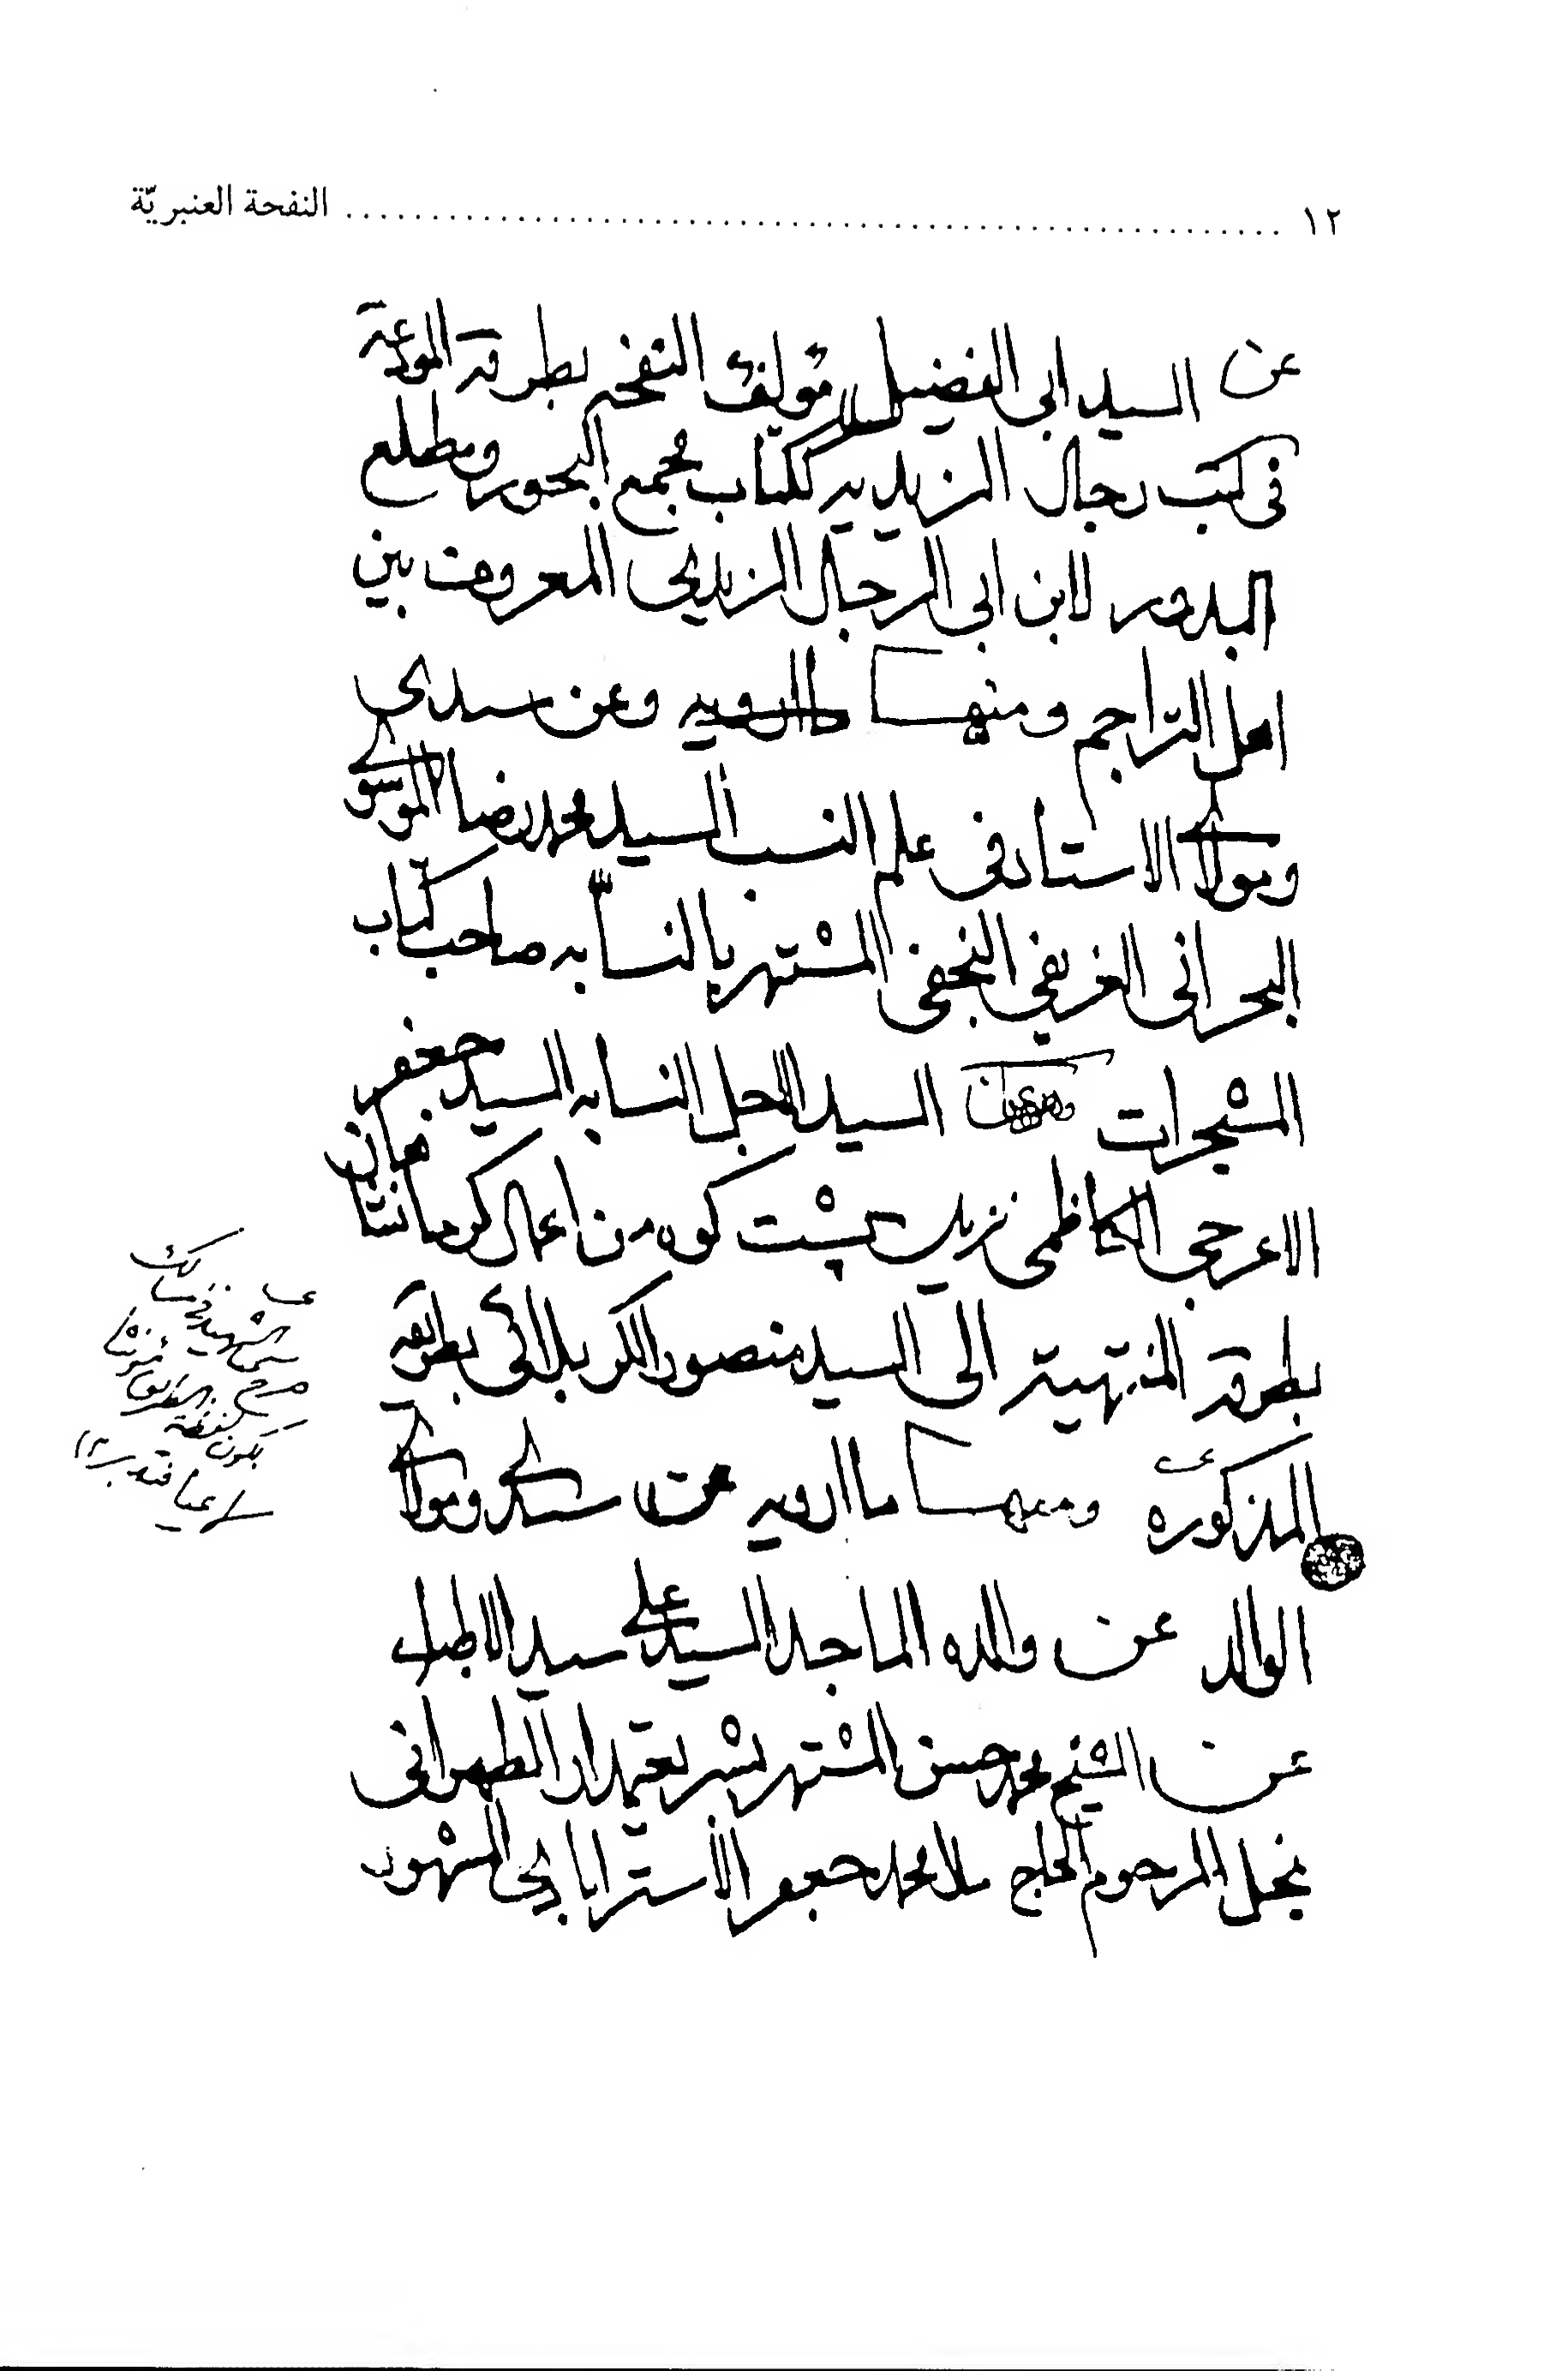 ١٢ ........................................ النفحة العنبريّة
عن السيد ابى الفضيل مؤلف النفحه بطرقه المودعة
فى كتب رجال الزيديه ككتاب مجمع البحور ومطلع
البدور لابن ابى الرجال الزيدى المعروف بين
اهل التراجم ومنها ما ارويه وعن سيدى
ومولاى الاستاد فى علم النسب السيد محمد رضا الموسوى
البحرانى الغريفى النجفى المشتهر بالنسّابه صاحب كتاب
المشجرات السيد الاجل النسابه السيد جعفر
الاعرجى الكاظمى نزيل پشت كوه من اعمال كرمانشاهان
بطرقه المنتهية الى السيد منصور الكربلائى بطريقه
المذكوره ومنها ما ارويه عن سيدى ومولاى
الوالد عن والده الماجد السيد على سيد الاطباء
عن الشيخ محمد حسن المشتهر بشريعتمدار الطهرانى
نجل المرحوم الحاج ملا محمد جعفر الأسترابادى المشهور